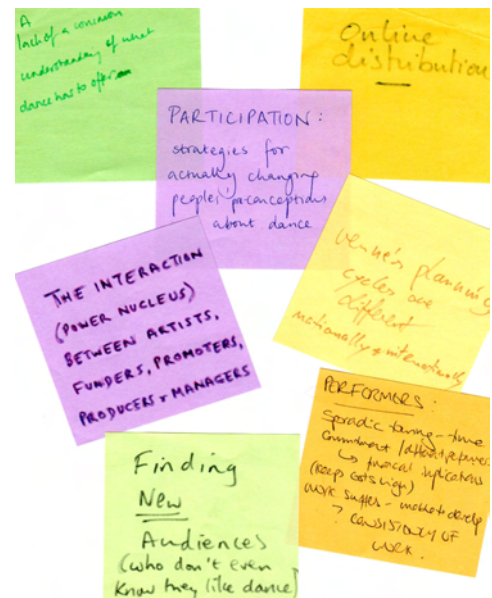 A
lack of a common
understanding of what
dance has to offer
Online
distribution
PARTICIPATION:
strategies for
actually changing
peoples' preconceptions
about dance
venue's planning
cycles are
different
nationally & internationally
THE INTERACTION
(POWER NUCLEUS)
BETWEEN ARTISTS,
FUNDERS, PROMOTERS,
PRODUCERS + MANAGERS
PERFORMERS:
Sporadic touring - time
commitment / different performers
↳ financial implications
(keeps costs high)
work suffers - to develop
? consistency of
work.
Finding
New
Audiences
(who don't even
know they like dance)